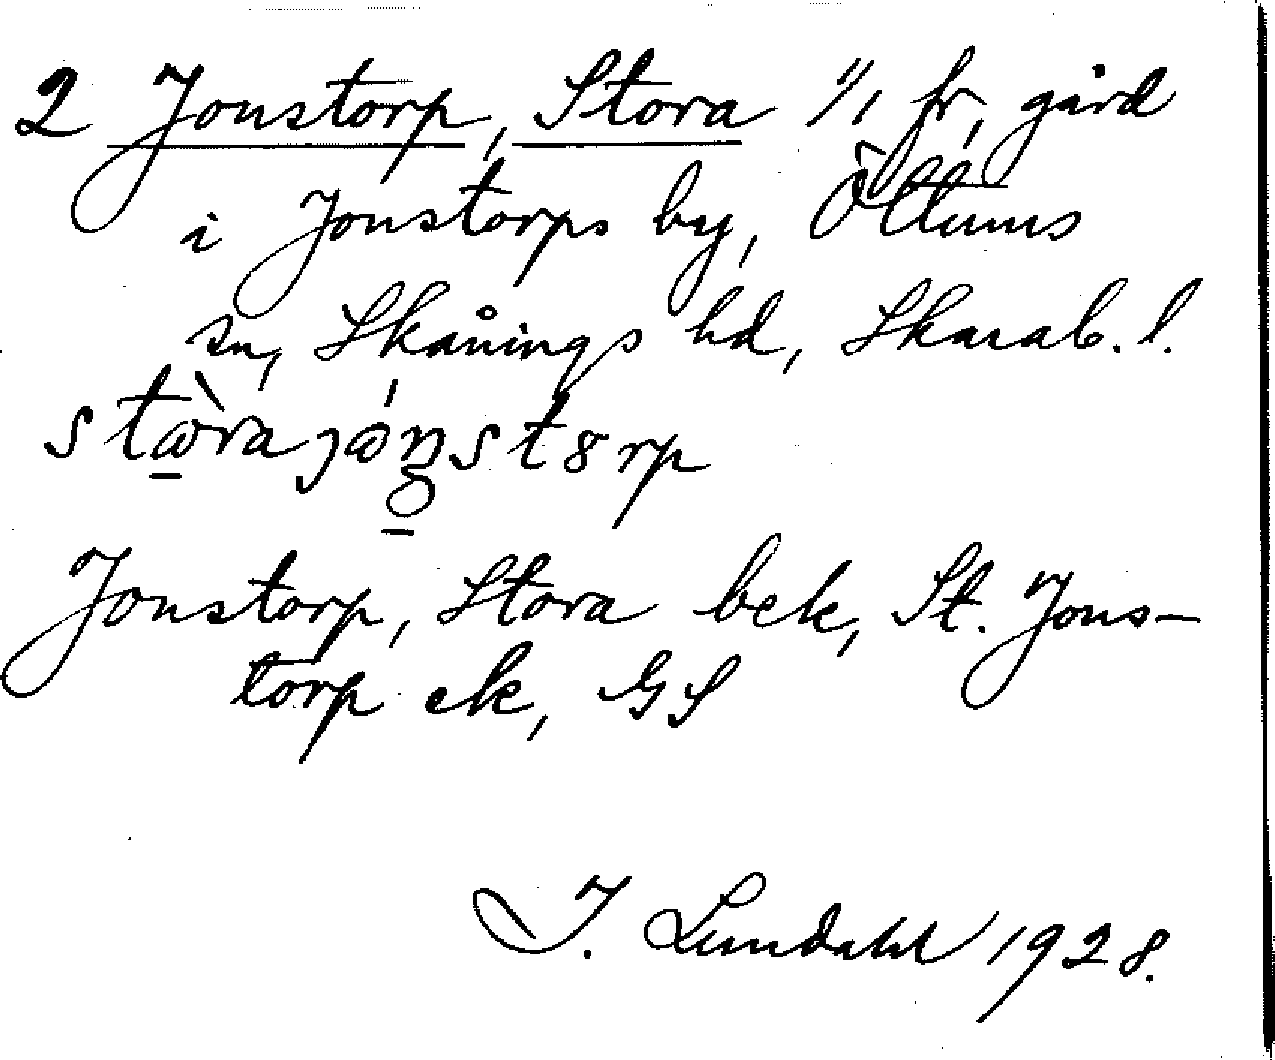 2 Jonstorp, Stora 1/1 fr, gård
i Jonstorps by, Öttums
sn, Skånings hd, Skarab. l.
Jonstorp, Stora bek, St. Jons-
torp ek, GS
I. Lundahl 1928.